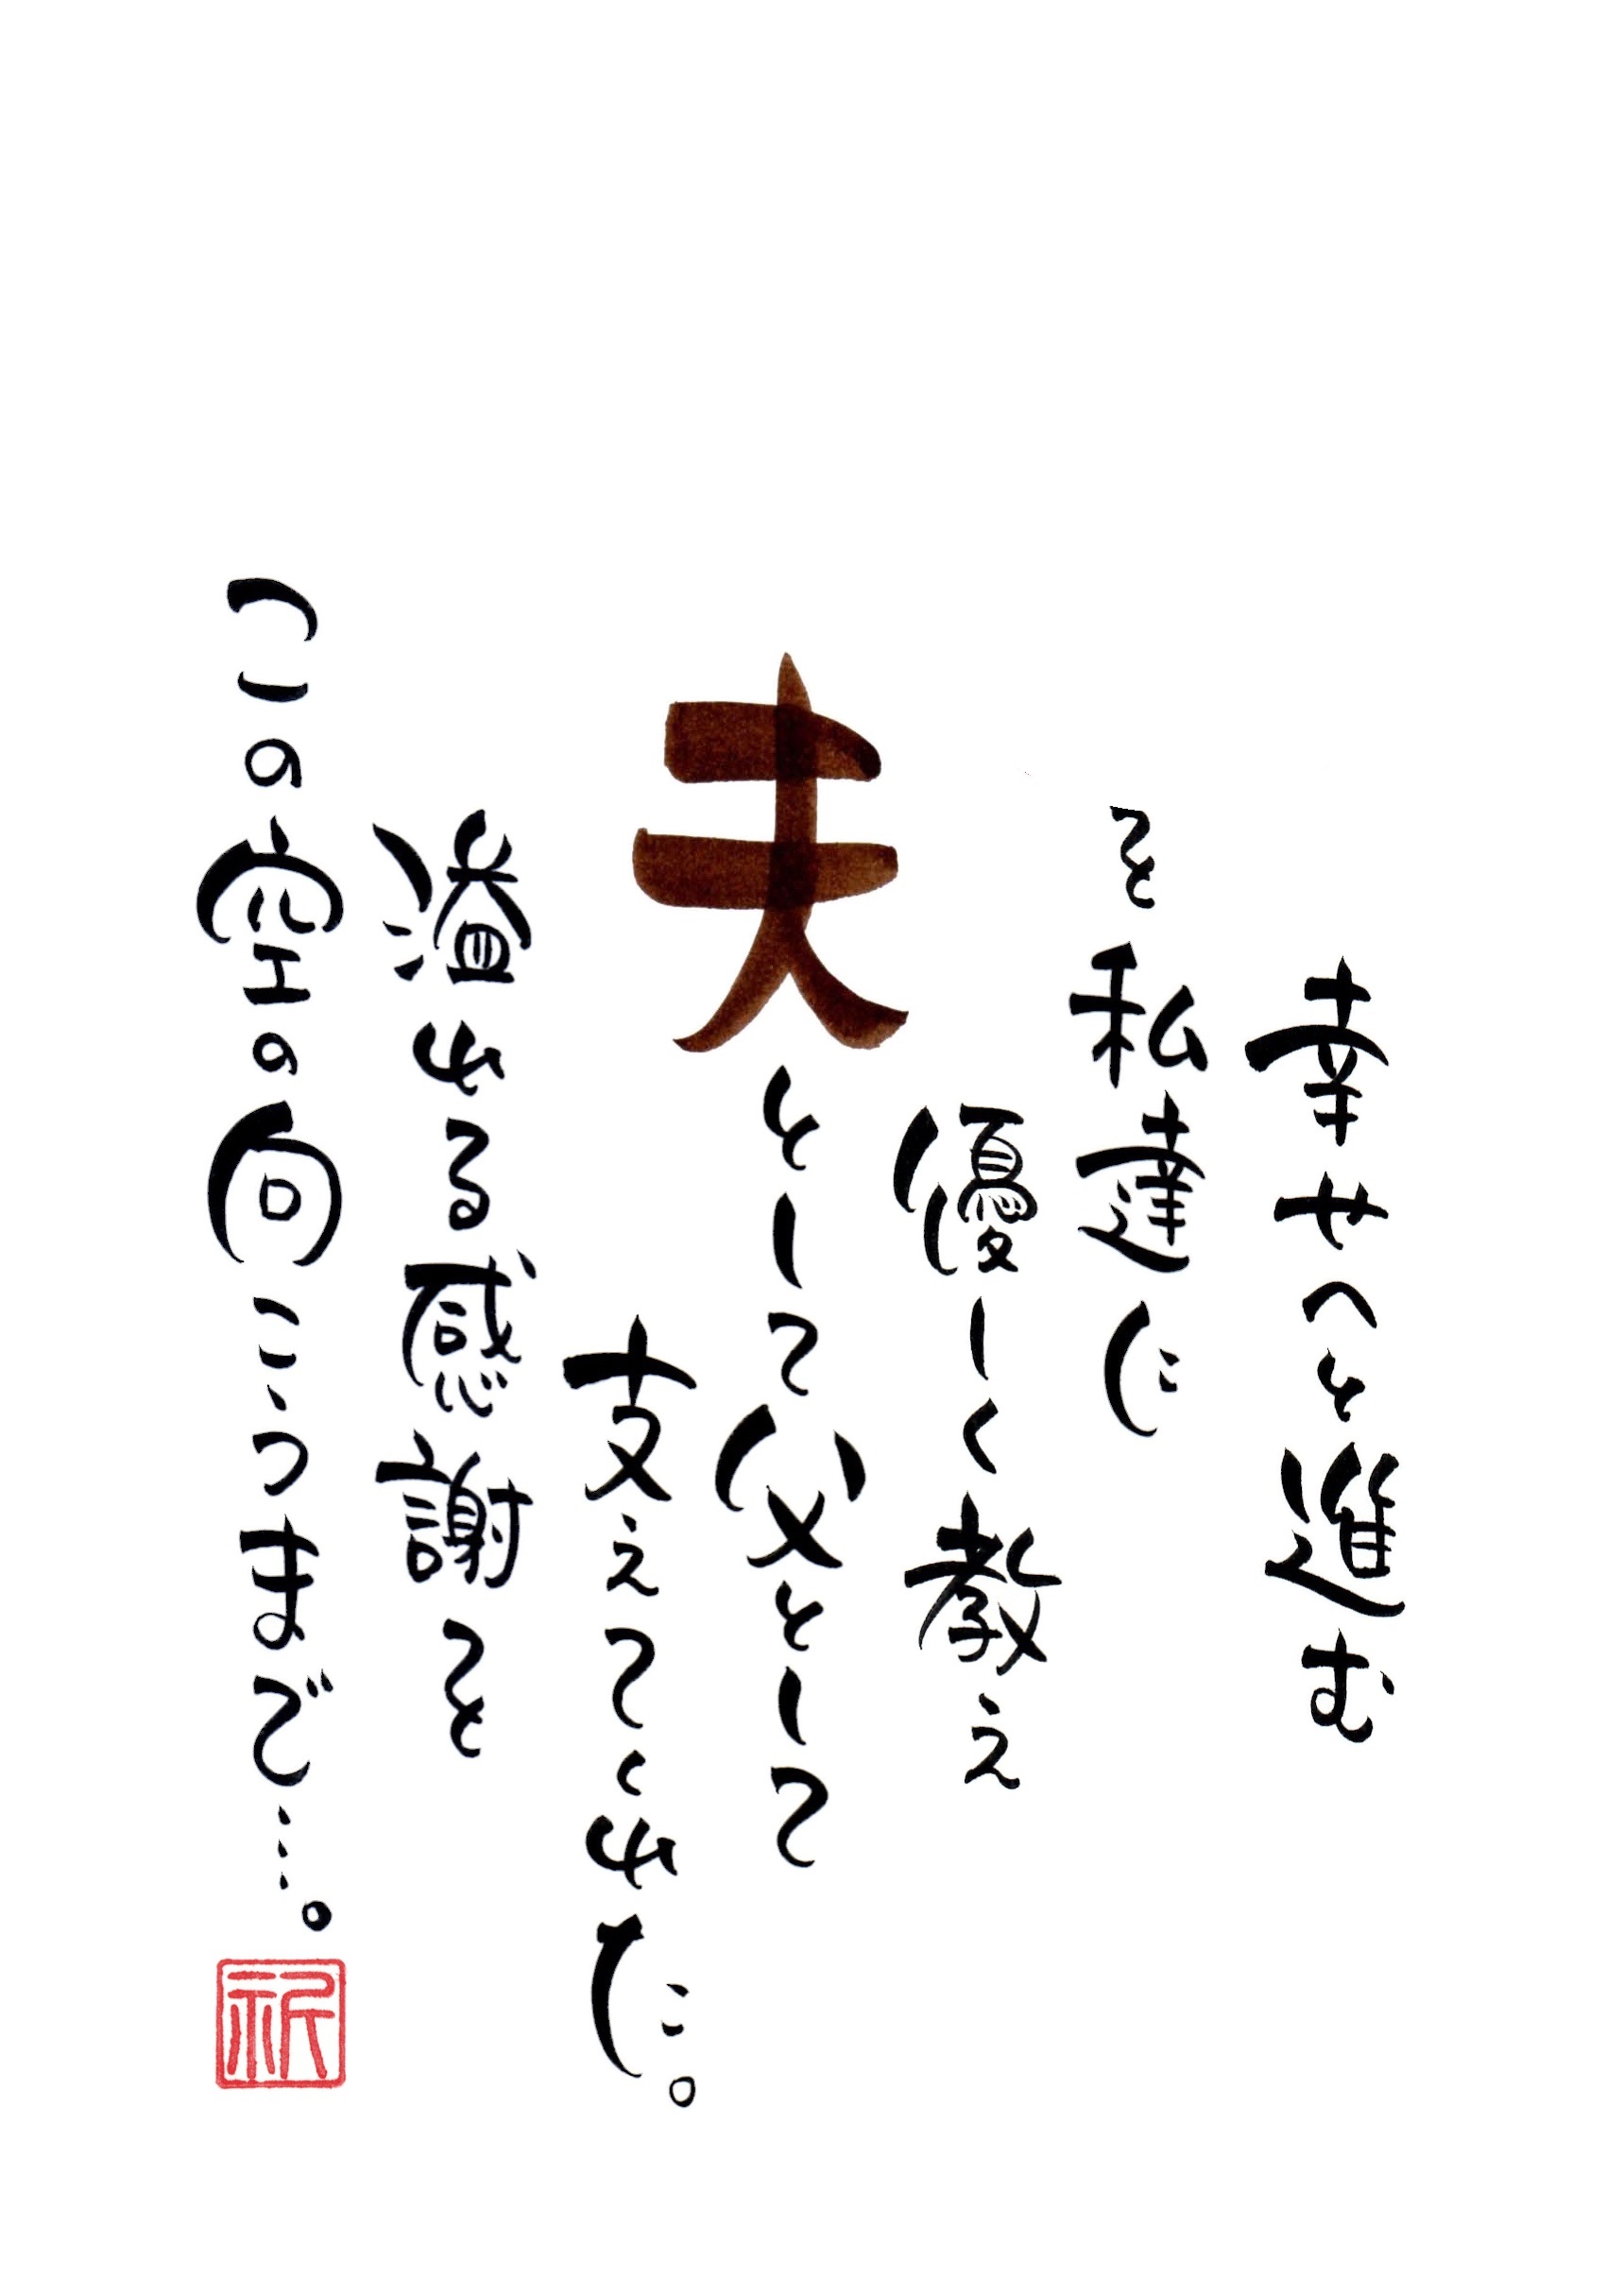 幸せへと進む
を私達に
優しく教え
夫として父として
支えてくれた。
溢れる感謝を
この空の向こうまで…。